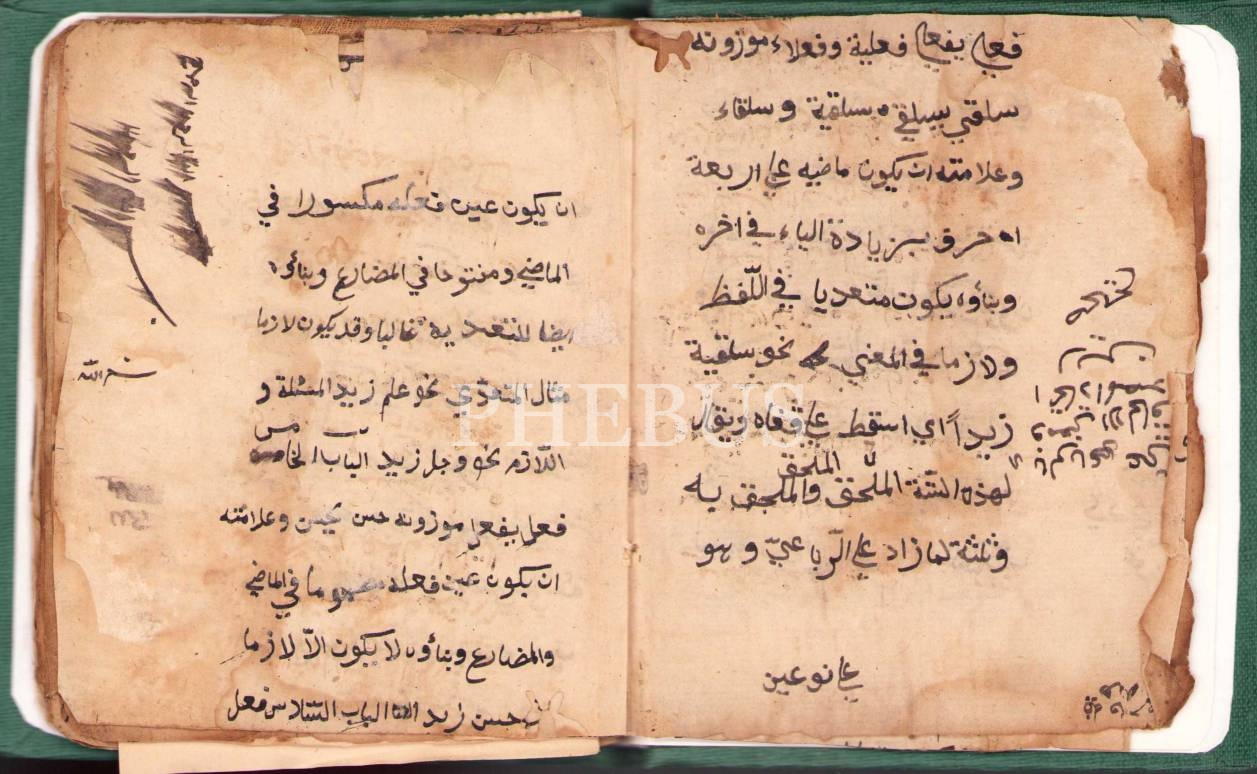 فعلى يفعلى فعلية وفعلاء موزونه
سلقى يسلقى سلقية وسلقاء
وعلامته ان يكون ماضيه على اربعة
احرف بزيادة الياء في اخره
وبناؤه يكون متعديا في اللّفظ
ولازما في المعنى نحو سلقية
زيداً اي اسقط على قفاه ويقال
لهذه الستّة الملحق والملحق به
الملحق
وثلثة لما زاد على الرّباعيّ وهو
على نوعين
ان يكون عين فعله مكسورا في
الماضي ومفتوحا في المضارع وبناؤه
ايضا للتعدية غالبا وقد يكون لازما
مثال المتعدّي نحو علم زيد المسئلة و
اللّازم نحو وجل زيد الباب الخامس
فعل يفعل موزونه حسن يحسن وعلامته
ان يكون عين فعله مضموما في الماضي
والمضارع وبناؤه لا يكون الاّ لازما
حسن زيد الباب السّادس فعل
PHEBUS